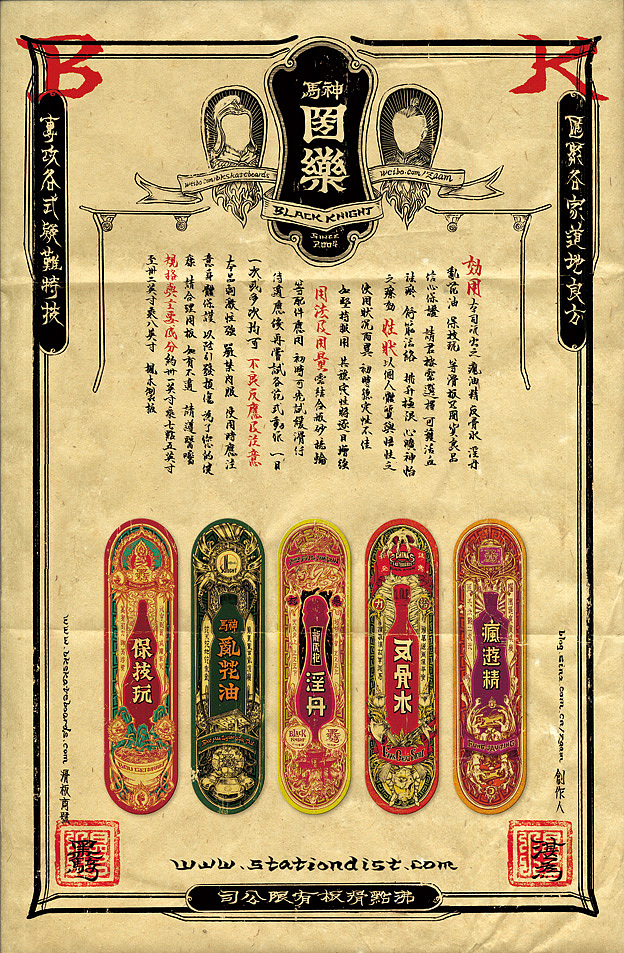 B K
神馬
BLACK KNIGHT
SINCE 2004
weibo.com/bkskateboards
weibo.com/zaam
匯聚各家道地良方
専攻各式疑難特技
効用 本司所出之瘋油精 反骨水 淫丹
亂花油 保技玩 等滑板
信心保證 請君按需選擇 可養活血
祛瘀 舒筋活絡 提升極限 心曠神怡
之療効 性狀 以個人體質與悟性之
使用狀況而異 初時穩定性不佳
如堅持服用 其穩定性將逐日增強
用法及用量 需結合板砂 橋輪
等配件應用 初時可先試緩滑行
待適應後再嘗試各花式動作 一日
一次或多次均可 不良反應及注意
本品刺激性強 嚴禁內服 使用時應注
意身體保護 以防引發損傷 為了您的健
康 請合理用板 如有不適 請遵醫囑
規格與主要成分 約卅一英寸乘七點五英寸
至卅二英寸乘八英寸 楓木製板
保技玩
神馬
亂花油
淫丹
Black Knight
反骨水
瘋遊精
blog.sina.com.cn/zaam 創作人
www.bkskateboards.com 滑板商號
www.stationdist.com
沸點滑板有限公司